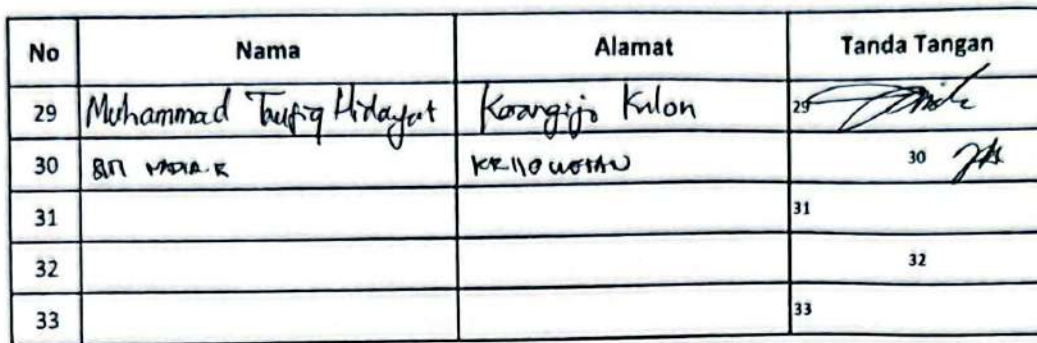 No Nama Alamat Tanda Tangan
29 Muhammad Taufiq Hidayat Karangijo Kulon 29
30 SITI NADIA.R 30
31 31
32 32
33 33